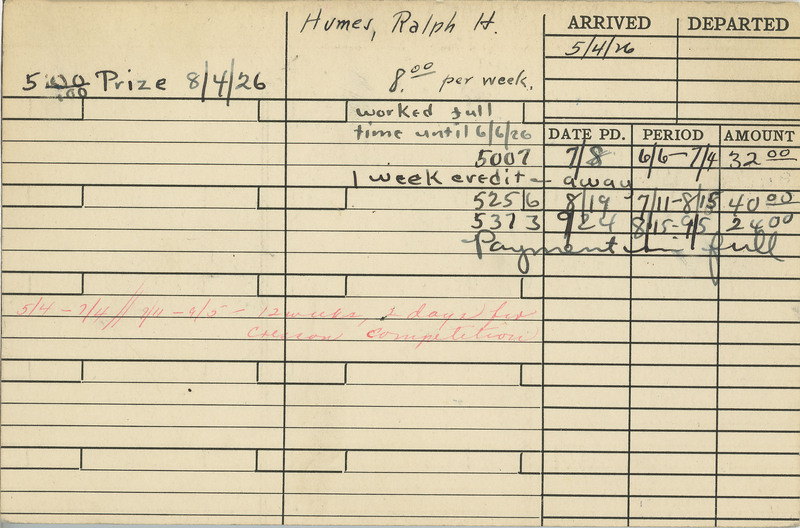 Humes, Ralph H.
ARRIVED DEPARTED
5/4/26
5.00 Prize 8/4/26
8.00 per week.
worked full
time until 6/6/26
DATE PD. PERIOD AMOUNT
5007 7/8 6/6-7/4 32 00
1 week credit - away
5256 8/19 7/11-8/15 40 00
5373 9/24 8/15-9/5 24 00
Payment in full
5/4 - 7/4 // 7/11 - 9/5 = 12 weeks, 2 days for
Cresson competition